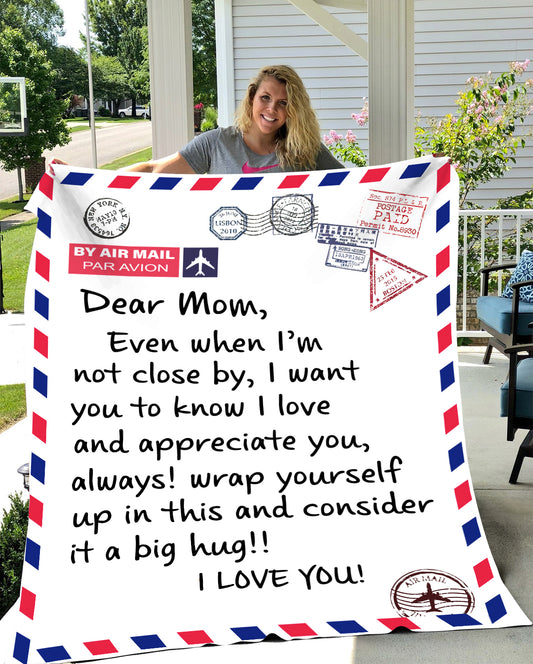 NEW YORK N.Y.
MAY 13
POSTAGE
PAID
Permit No.8930
LISBON
2010
BY AIR MAIL
PAR AVION
Dear Mom,
Even when I'm
not close by, I want
you to know I love
and appreciate you,
always! wrap yourself
up in this and consider
it a big hug!!
I LOVE YOU!
AIR MAIL